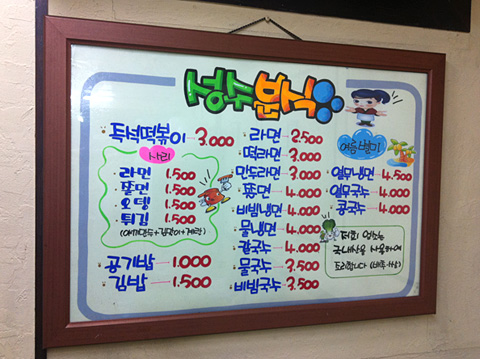 정수분식
즉석떡볶이 3.000
사리
라면 1.500
쫄면 1.500
오뎅 1.500
튀김 1.500
공기밥 1.000
김밥 1.500
라면 2.500
떡라면 3.000
만두라면 3.000
쫄면 4.000
비빔냉면 4.000
물냉면 4.000
칼국수 4.000
물국수 3.500
비빔국수 3.500
여름별미
열무냉면 4.500
열무국수 4.000
콩국수 4.000
저희 업소는
국내산을 사용하여
조리합니다 (배추+쌀)